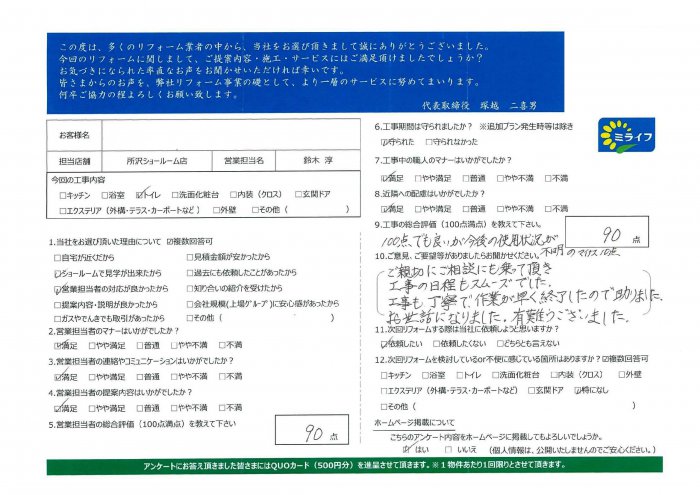 この度は、多くのリフォーム業者の中から、当社をお選び頂きまして誠にありがとうございました。
今回のリフォームに関しまして、ご提案内容・施工・サービスにはご満足頂けましたでしょうか？
お気づきになられた率直なお声をお聞かせいただければ幸いです。
皆さまからのお声を、弊社リフォーム事業の礎として、より一層のサービスに努めてまいります。
何卒ご協力の程よろしくお願い致します。
代表取締役 塚越 二喜男
ミライフ
お客様名
担当店舗 所沢ショールーム店 営業担当名 鈴木 淳
今回の工事内容
□キッチン □浴室 ☑トイレ □洗面化粧台 □内装（クロス） □玄関ドア
□エクステリア（外構・テラス・カーポートなど） □外壁 □その他（ ）
1.当社をお選び頂いた理由について ☑複数回答可
□自宅が近だから □見積金額が安かったから
☑ショールームで見学が出来たから □過去にも依頼したことがあったから
☑営業担当者の対応が良かったから □知り合いの紹介を受けたから
□提案内容・説明が良かったから □会社規模(上場ｸﾞﾙｰﾌﾟ)に安心感があったから
□ガスやでんきでも取引があったから □その他（ ）
2.営業担当者のマナーはいかがでしたか？
☑満足 □やや満足 □普通 □やや不満 □不満
3.営業担当者の連絡やコミュニケーションはいかがでしたか？
☑満足 □やや満足 □普通 □やや不満 □不満
4.営業担当者の提案内容はいかがでしたか？
☑満足 □やや満足 □普通 □やや不満 □不満
5.営業担当者の総合評価（100点満点）を教えて下さい
90 点
6.工事期間は守られましたか？ ※追加プラン発生時等は除き
☑守られた □守られなかった
7.工事中の職人のマナーはいかがでしたか？
☑満足 □やや満足 □普通 □やや不満 □不満
8.近隣への配慮はいかがでしたか？
☑満足 □やや満足 □普通 □やや不満 □不満
9.工事の総合評価（100点満点）を教えて下さい。
90 点
100点でも良いが今後の使用状況が
不明のマイナス10点
10.ご意見、ご要望等がありましたらお聞かせください。
ご親切にご相談にも乗って頂き
工事の日程もスムーズでした。
工事も丁寧で作業が早く終了したので助りました。
お世話になりました。有難うございました。
11.次回リフォームする際は当社に依頼しようと思いますか？
☑依頼したい □依頼したくない □どちらとも言えない
12.次回リフォームを検討しているor不便に感じている箇所はありますか？☑複数回答可
□キッチン □浴室 □トイレ □洗面化粧台 □内装（クロス） □外壁
□エクステリア（外構・テラス・カーポートなど） □玄関ドア ☑特になし
□その他（ ）
ホームページ掲載について
こちらのアンケート内容をホームページに掲載してもよろしいでしょうか。
☑はい □いいえ （個人情報は、公開いたしませんのでご安心ください。）
アンケートにお答え頂きました皆さまにはQUOカード（500円分）を進呈させて頂きます。※１物件あたり1回限りとさせて頂きます。